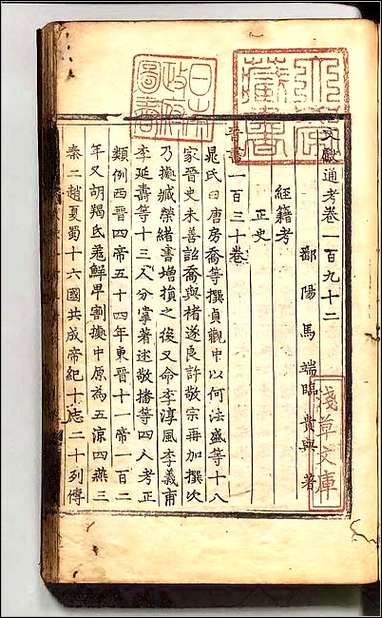 文獻通考卷一百九十二
鄱陽馬端臨貴與著
經籍考
正史
晉書一百三十卷
晁氏曰唐房喬等撰貞觀中以何法盛等十八
家晉史未善詔喬與褚遂良許敬宗再加撰次
乃據臧榮緒書增損之後又命李淳風李義甫
李延壽等十三人分掌著述敬播等四人考正
類例西晉四帝五十四年東晉十一帝一百二
年又胡羯氐羌鮮卑割據中原為五涼四燕三
秦二趙夏蜀十六國共成帝紀十志二十列傳
淺草文庫
日本政府圖書
藏書